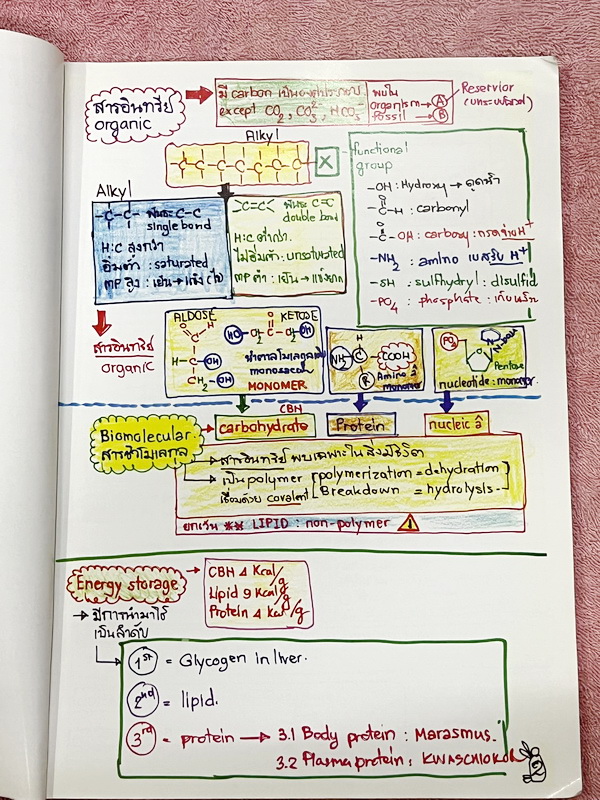 สารอินทรีย์
organic
มี carbon เป็นองค์ประกอบ
except CO2, CO3 2-, HCO3-
พบใน
organism → A
fossil → B
Reservior
Alkyl
-C-C-C-C-C-C-C- X
functional
group
-OH : Hydroxy → ดูดน้ำ
O
-C-H : carbonyl
O
-C-OH : carboxy : กรดจ่าย H+
-NH2 : amino เบสรับ H+
-SH : sulfhydryl : disulfid
-PO4 : phosphate :
Alkyl
-C-C- พันธะ C-C
single bond
H:C สูงกว่า
อิ่มตัว : saturated
MP สูง : เย็น → แข็ง (ไข)
>C=C< พันธะ C=C
double bond
H:C ต่ำกว่า
ไม่อิ่มตัว : unsaturated
MP ต่ำ : เย็น → แข็งยาก
สารอินทรีย์
organic
ALDOSE
O H
C
H-C-OH
CH2-OH
KETOSE
O
HO-CH2 C CH2-OH
น้ำตาลโมเลกุลเดี่ยว
MONOMER
H
NH2-C-COOH
R
Amino â
PO4
N-base
Pentose
nucleotide : monomer
Biomolecular
สารชีวโมเลกุล
CBH
carbohydrate
Protein
nucleic â
→ สารอินทรีย์ พบเฉพาะในสิ่งมีชีวิต
→ เป็น polymer polymerization = dehydration
เชื่อมด้วย covalent Breakdown = hydrolysis
ยกเว้น ** LIPID : non-polymer
Energy storage
CBH 4 Kcal/g
Lipid 9 Kcal/g
Protein 4 Kcal/g
→ มีการนำมาใช้
เป็นลำดับ
1st = Glycogen in liver.
2nd = lipid.
3rd = protein → 3.1 Body protein : Marasmus.
3.2 Plasma protein : KWASCHIOKOR